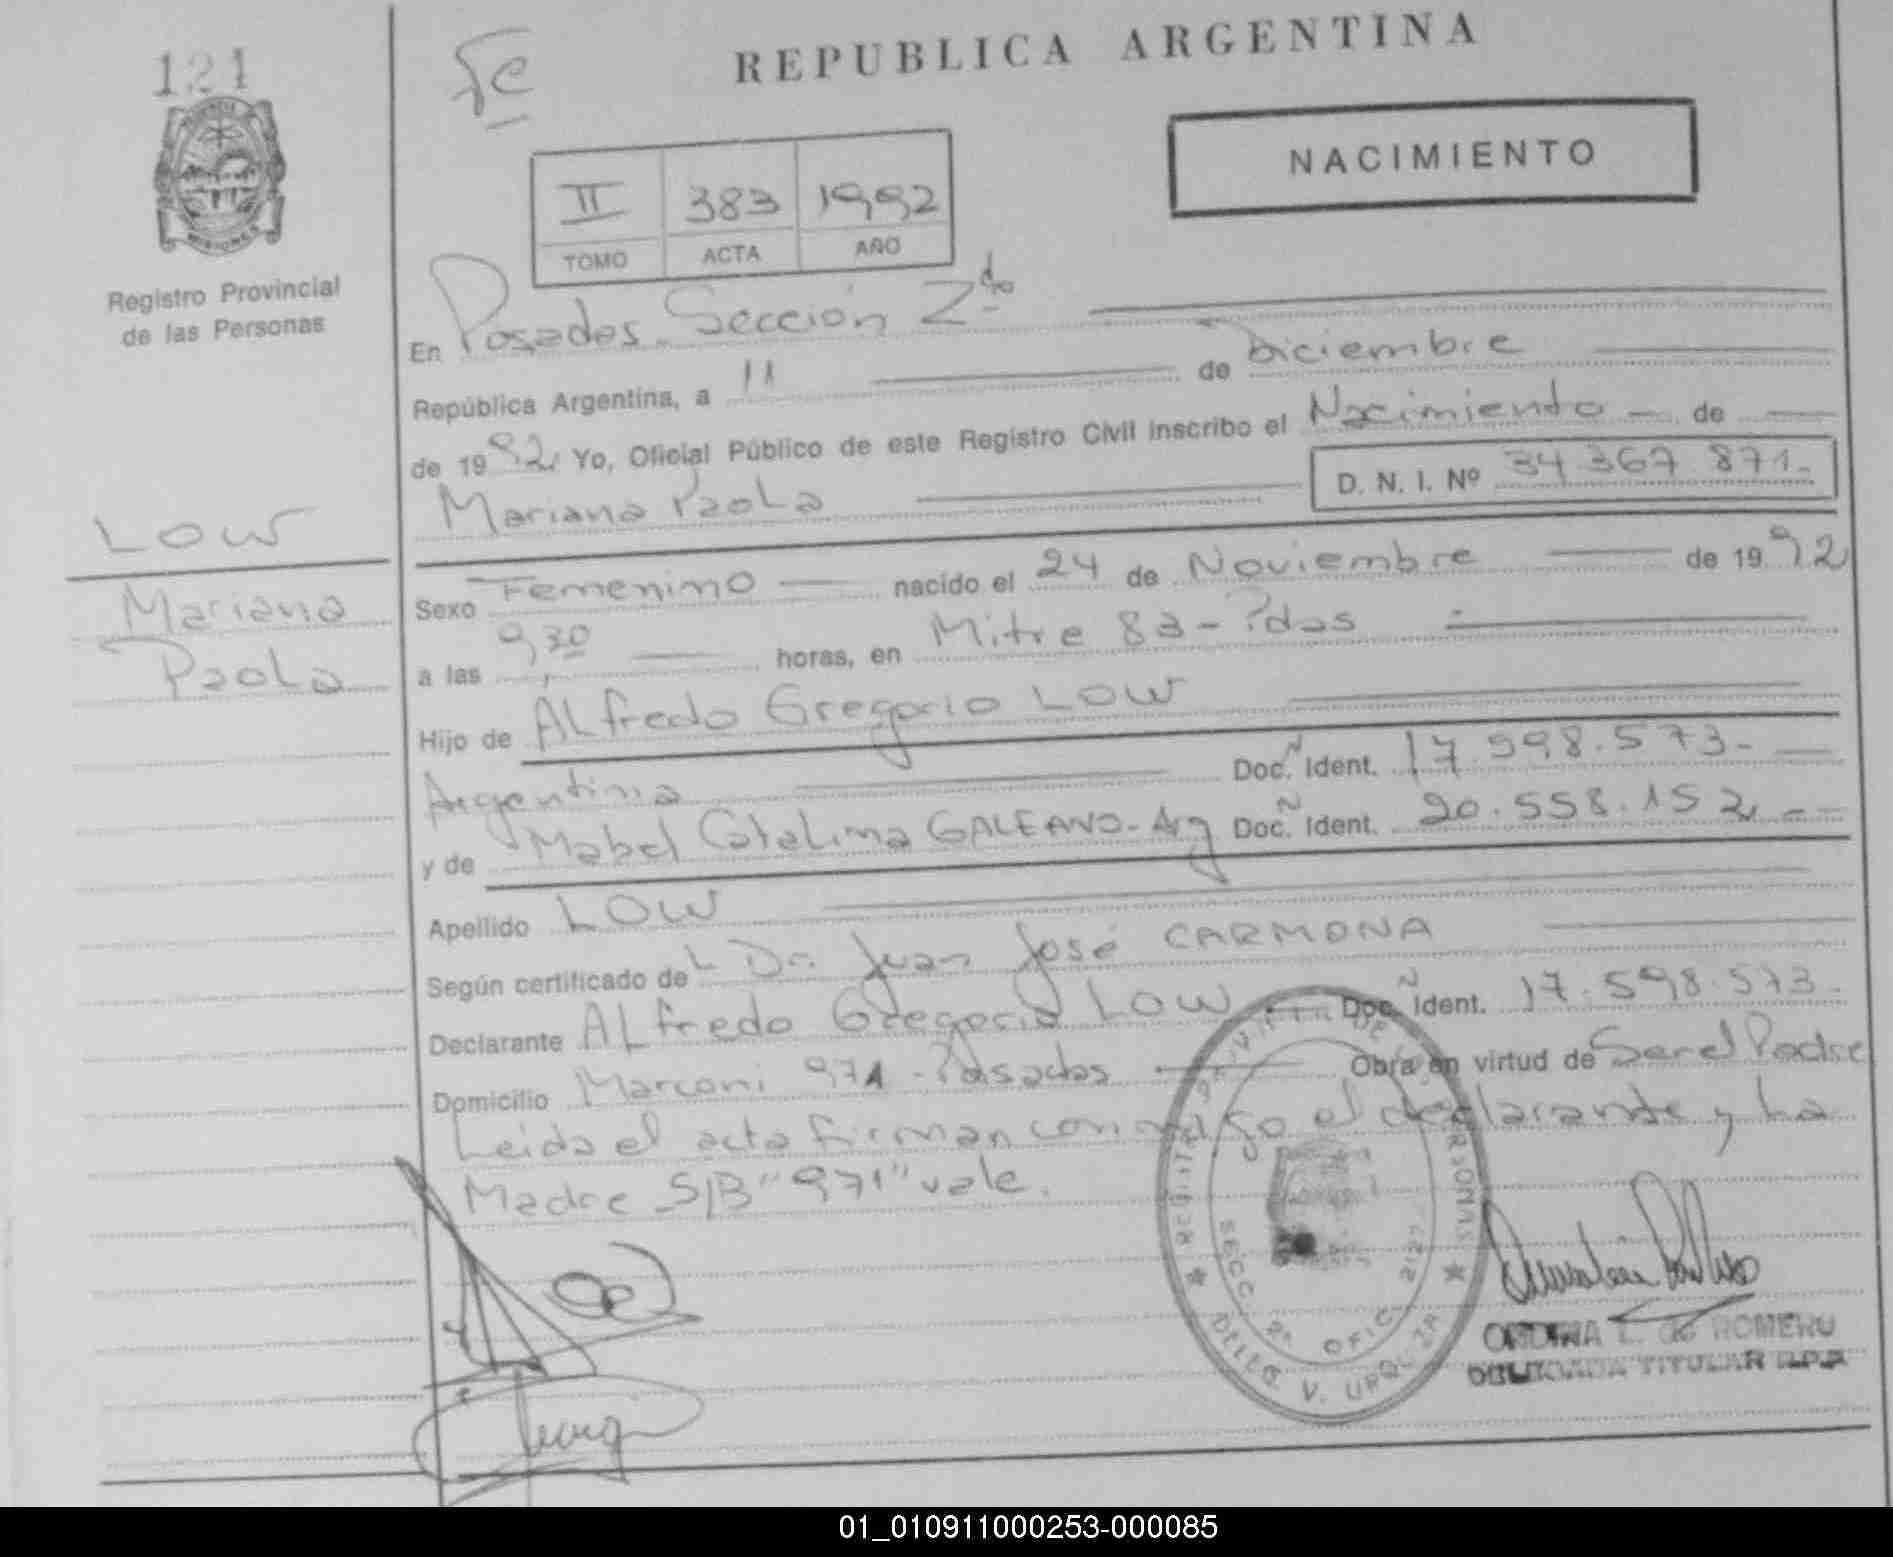 121
Sc
REPUBLICA ARGENTINA
NACIMIENTO
II 383 1992
TOMO ACTA AÑO
MISIONES
Registro Provincial
de las Personas
En Posadas. Sección 2da
República Argentina, a 11 de Diciembre
de 1992 Yo, Oficial Público de este Registro Civil inscribo el Nacimiento de
Mariana Paola D. N. I. Nº 34 367 871.
LOW
Mariana
Paola
Sexo Femenino nacido el 24 de Noviembre de 1992
a las 9,30 horas, en Mitre 83 - Pdas
Hijo de Alfredo Gregorio LOW
Argentina Doc. N Ident. 17.598.573.
y de Mabel Catalina GALEANO - Arg Doc. N Ident. 20.558.152
Apellido LOW
Según certificado del Dr. Juan José CARMONA
Declarante Alfredo Gregorio LOW Doc. N Ident. 17.598.573.
Domicilio Marconi 971 - Posadas Obra en virtud de Ser el Padre
Leida el acta firman conmigo el declarante y la
Madre S/B "971" vale.
SECC. 2ª OFIC. 2127
DELEG. V. URQUIZA
L. de ROMERO
DELEGADA TITULAR R.P.P.
01_010911000253-000085